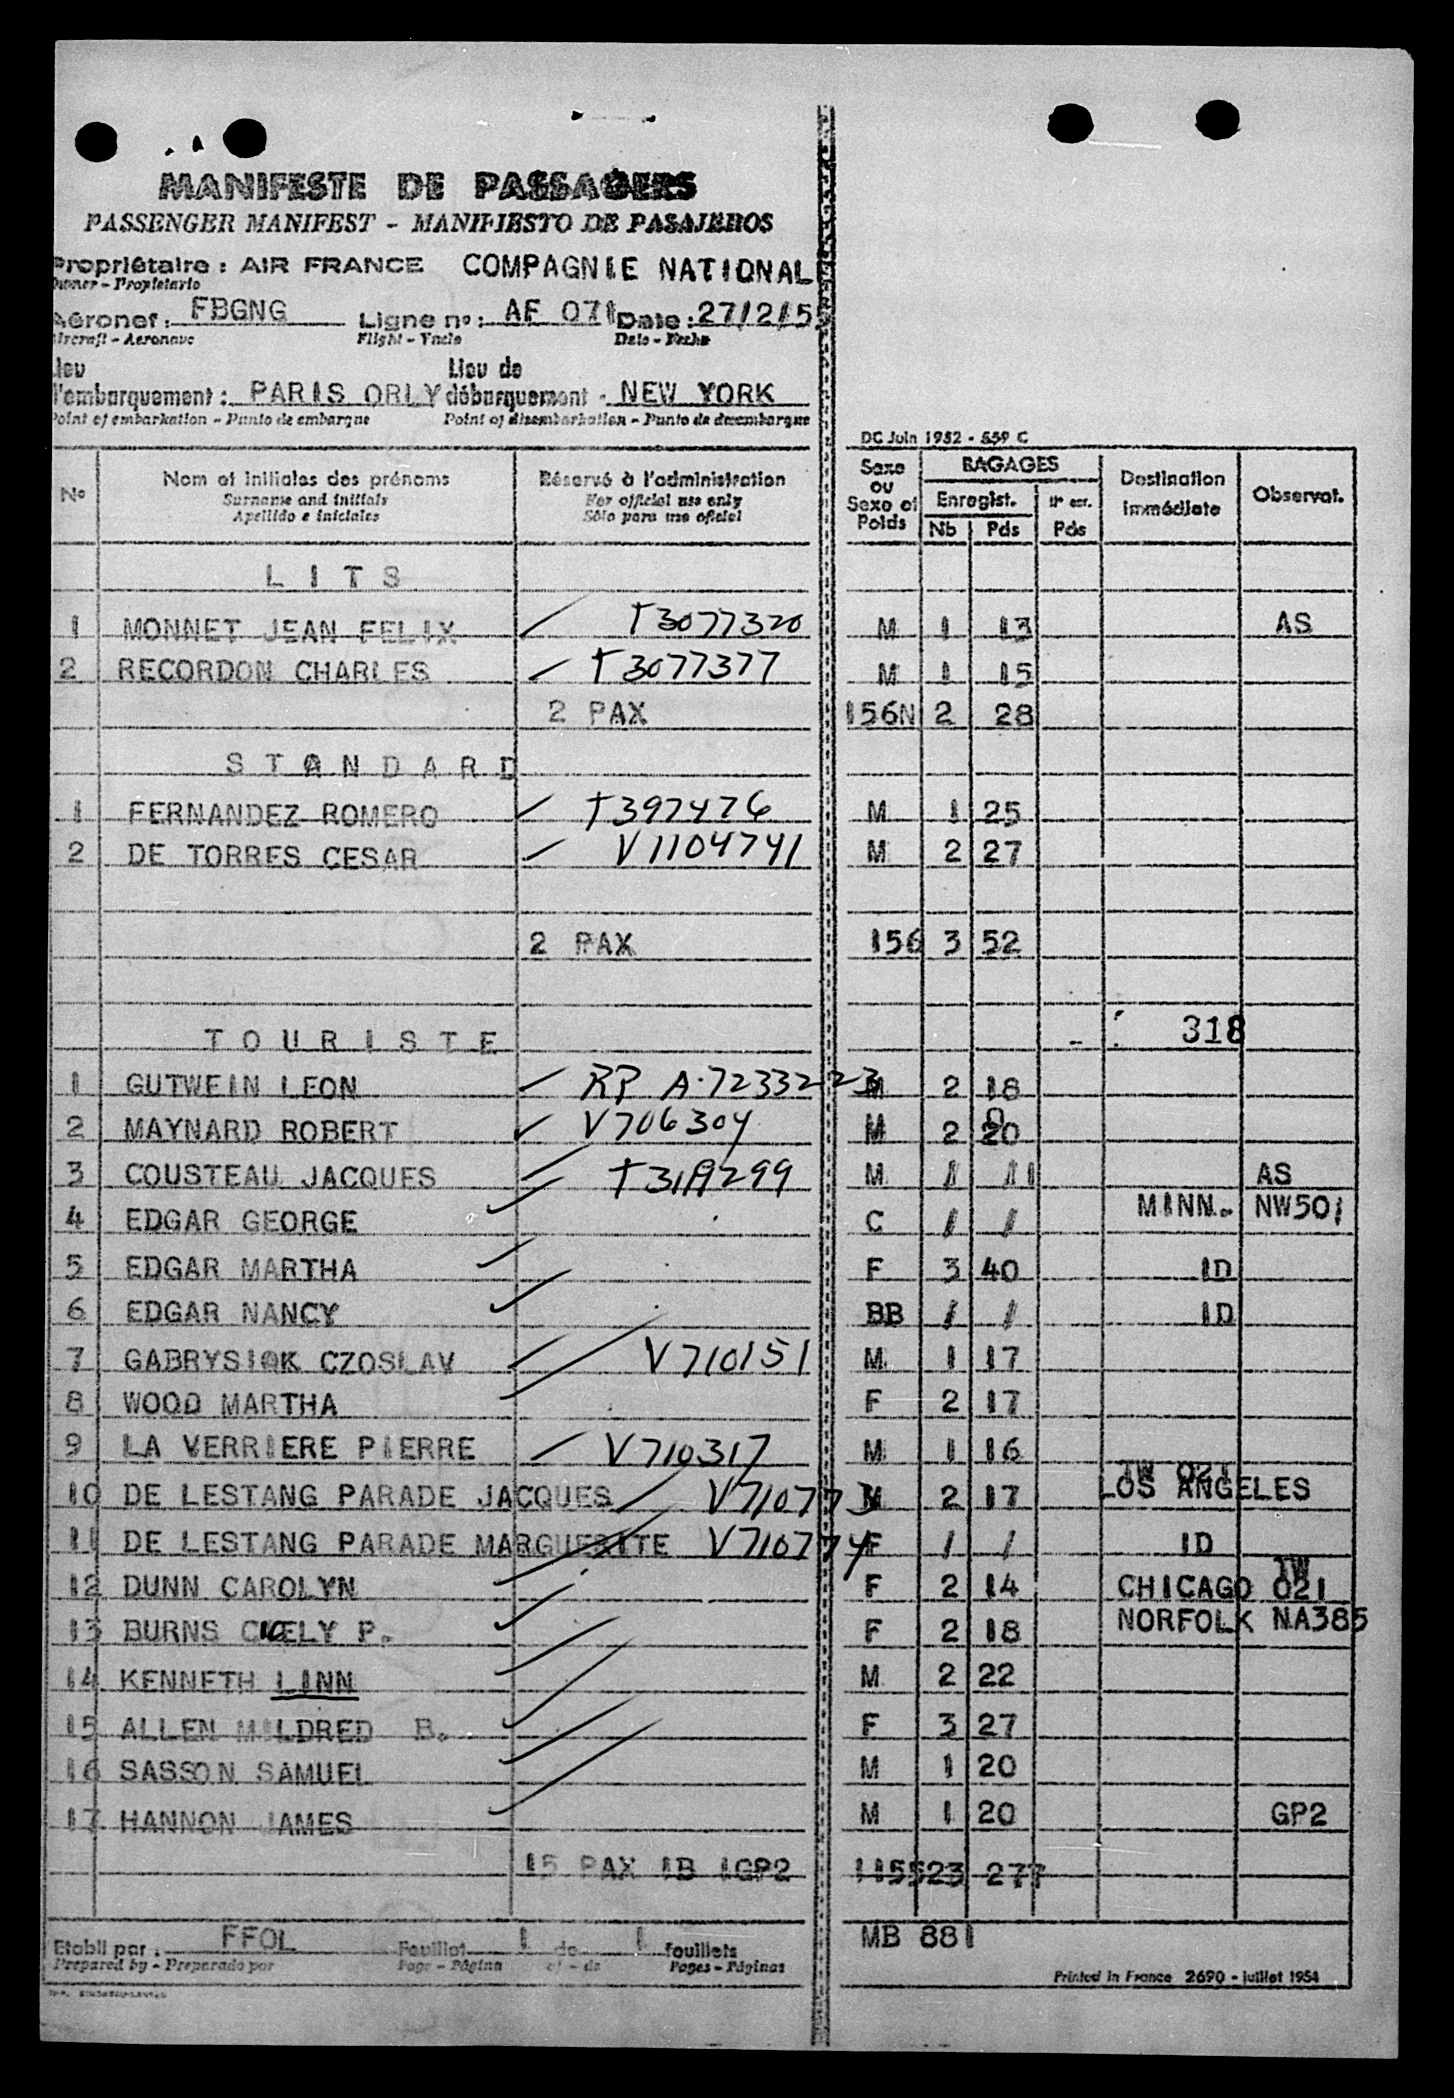 MANIFESTE DE PASSAGERS
PASSENGER MANIFEST - MANIFIESTO DE PASAJEROS
Propriétaire : AIR FRANCE COMPAGNIE NATIONAL
Owner - Propietario
Aéronef : FBGNG Ligne no : AF 071 Date : 27/2/55
Aircraft - Aeronave Flight - Vuelo Date - Fecha
Lieu Lieu de
d'embarquement : PARIS ORLY débarquement - NEW YORK
Point of embarkation - Punto de embarque Point of disembarkation - Punto de desembarque
DC Juin 1952 - 559 C
No Nom et initiales des prénoms Réservé à l'administration Sexe ou Sexe et Poids BAGAGES Destination immédiate Observat.
Surname and initials For official use only Enregist. Pds
Apellido e iniciales Sólo para uso oficial Nb Pds
L I T S
1 MONNET JEAN FELIX T3077320 M 1 13 AS
2 RECORDON CHARLES T3077377 M 1 15
2 PAX 156N 2 28
S T A N D A R D
1 FERNANDEZ ROMERO T397476 M 1 25
2 DE TORRES CESAR V1104741 M 2 27
2 PAX 156 3 52
T O U R I S T E 318
1 GUTWEIN LEON RP A-7233223 M 2 18
2 MAYNARD ROBERT V706304 M 2 20
3 COUSTEAU JACQUES M / 11 AS
4 EDGAR GEORGE C / / MINN. NW501
5 EDGAR MARTHA F 3 40 ID
6 EDGAR NANCY BB / / ID
7 GABRYSIAK CZOSLAV V710151 M 1 17
8 WOOD MARTHA F 2 17
9 LA VERRIERE PIERRE V710317 M 1 16
TW 021
10 DE LESTANG PARADE JACQUES V710773 M 2 17 LOS ANGELES
11 DE LESTANG PARADE MARGUERITE V710774 F / / ID
TW
12 DUNN CAROLYN F 2 14 CHICAGO 021
13 BURNS CICELY P. F 2 18 NORFOLK NA385
14 KENNETH LINN M 2 22
15 ALLEN MILDRED B. F 3 27
16 SASSON SAMUEL M 1 20
17 HANNON JAMES M 1 20 GP2
15 PAX 1B 1GP2 1155 23 277
Etabli par : FFOL Feuillet 1 de 1 feuillets MB 881
Prepared by - Preparado por Page - Página of - de Pages - Páginas
Printed in France 2690 - juillet 1954